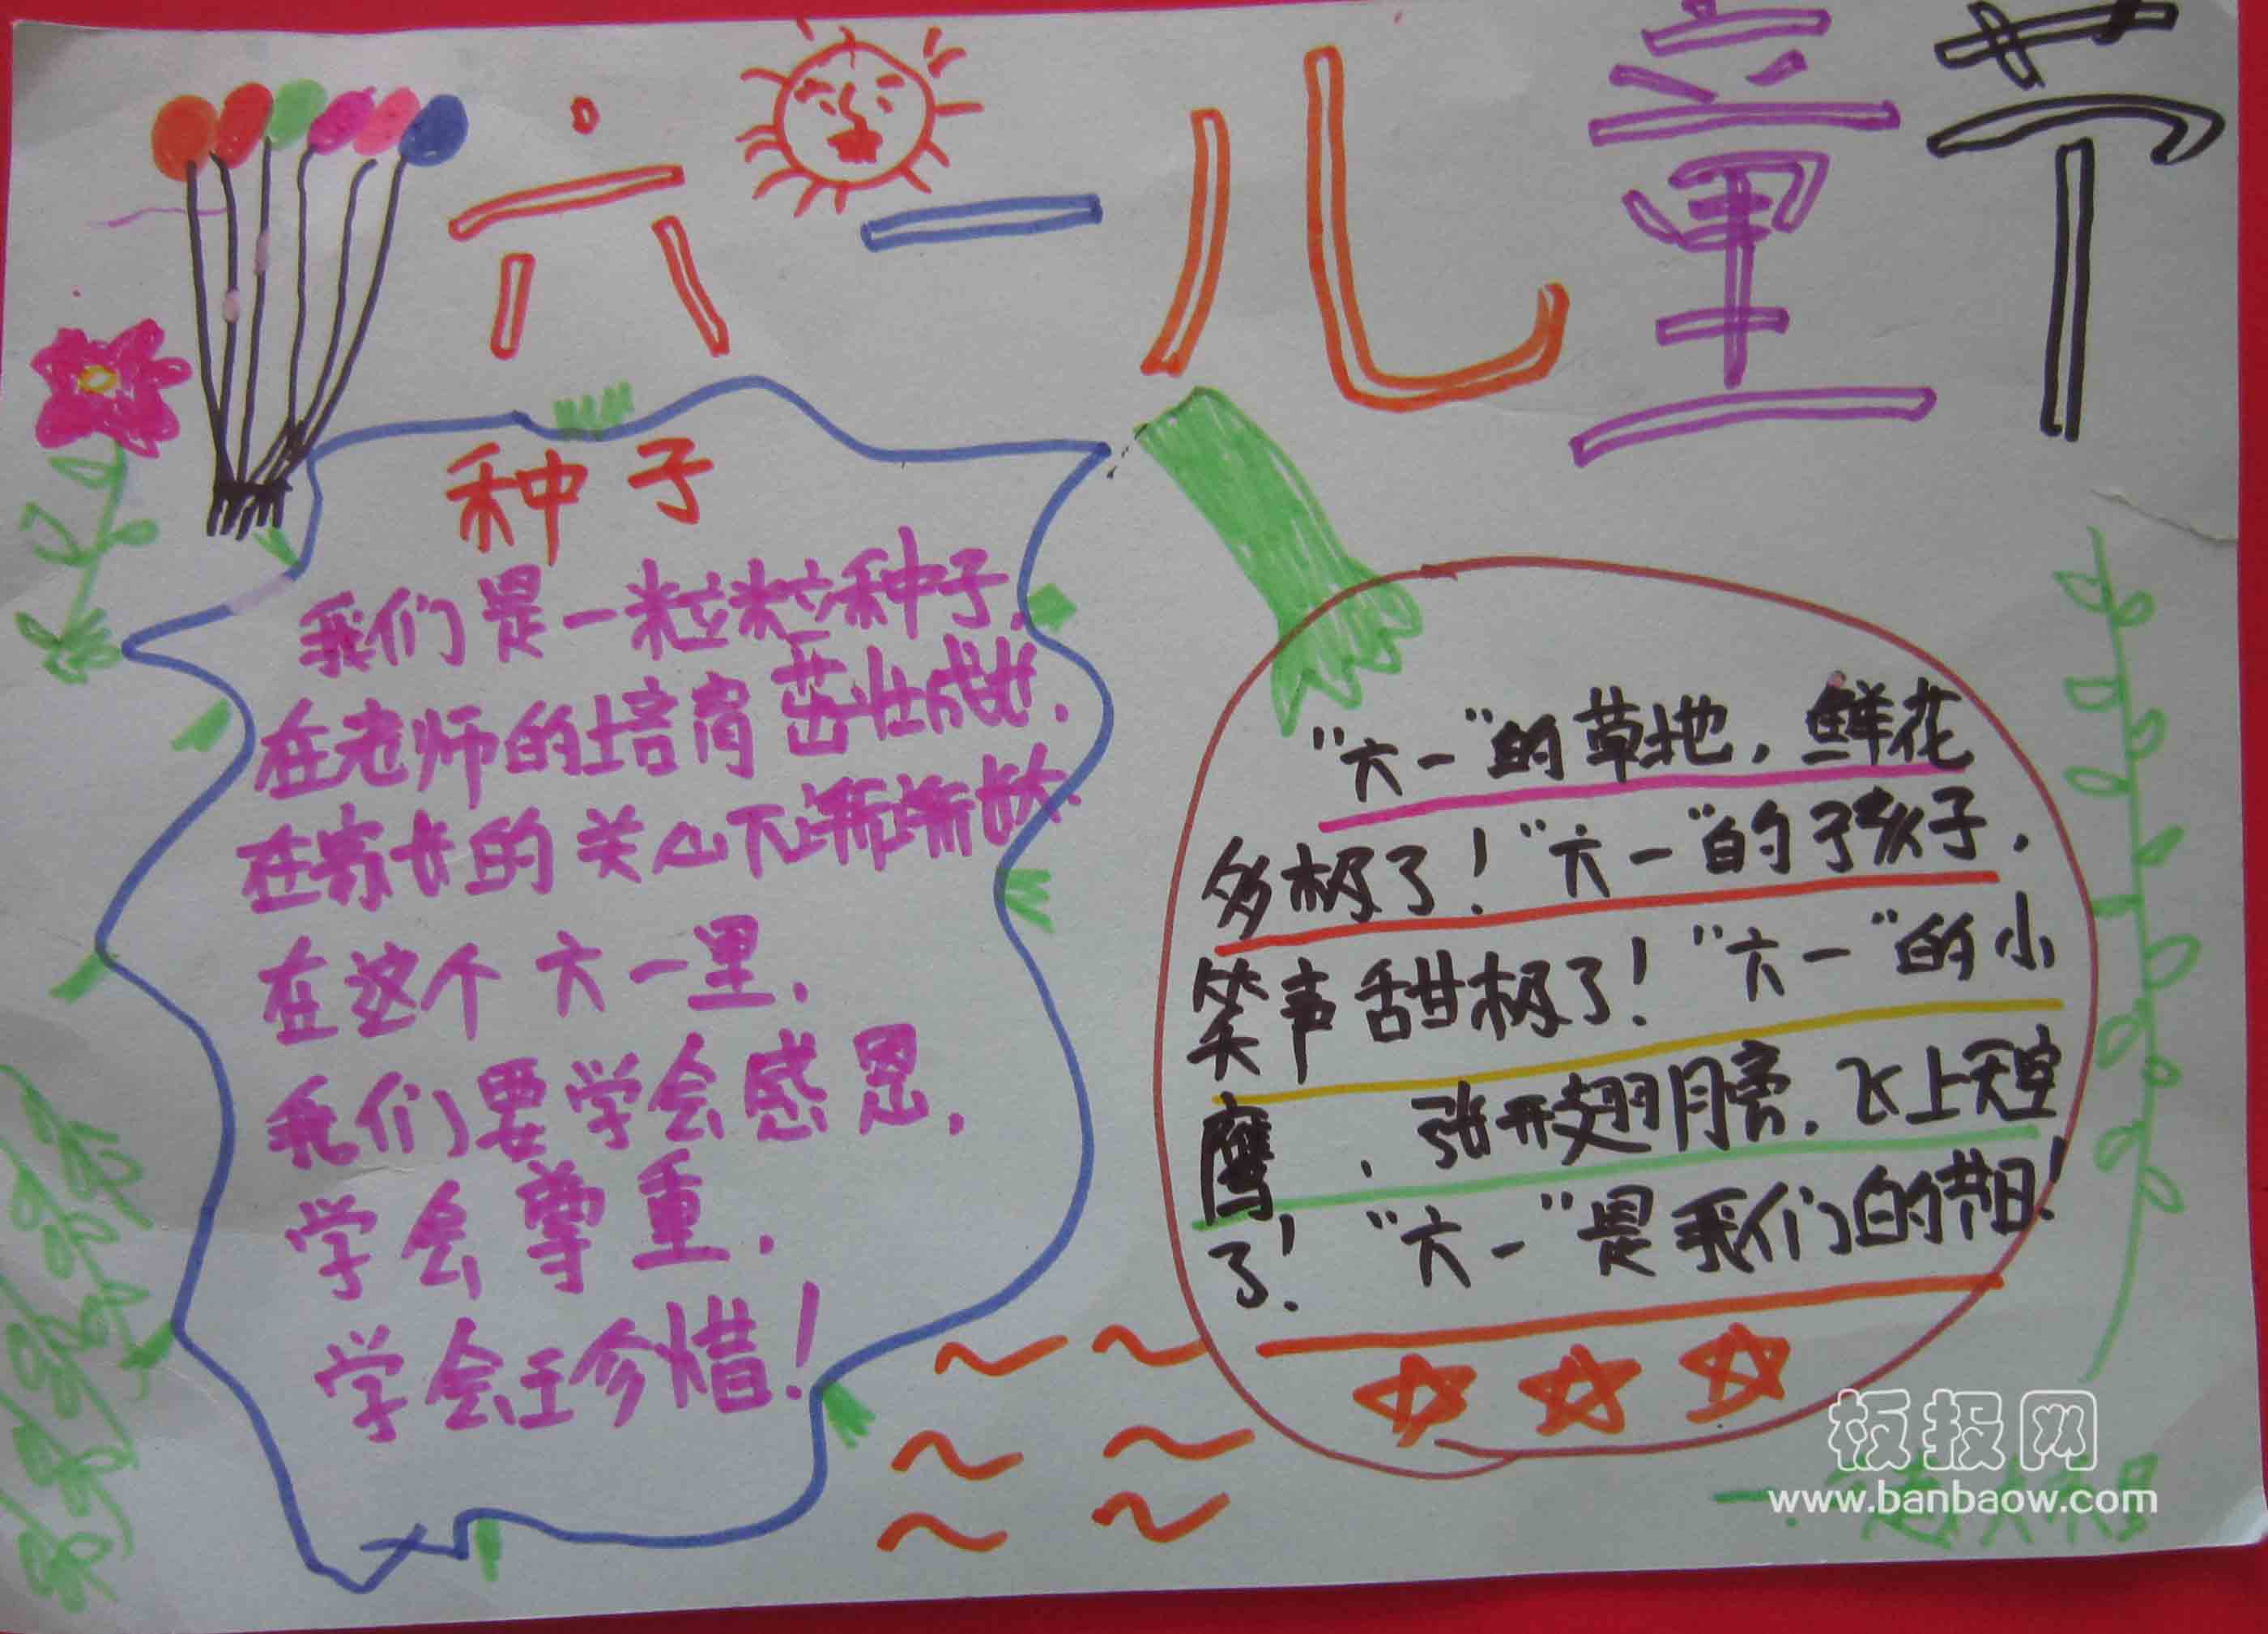 六一儿童节
种子
我们是一粒粒种子,
在老师的培育茁壮成长,
在家长的关心下渐渐长大.
在这个六一里,
我们要学会感恩,
学会尊重,
学会珍惜!
"六一"的草地,鲜花
多极了!"六一"的孩子,
笑声甜极了!"六一"的小
鹰,张开翅膀,飞上天空
了!"六一"是我们的节日!
板报网
www.banbaow.com